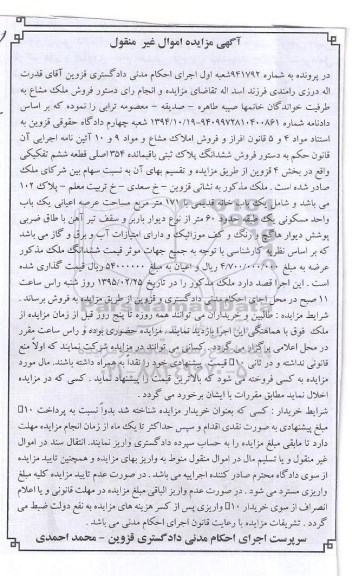 آگهی مزایده اموال غیر منقول
در پرونده به شماره ۹۴۱۷۹۲شعبه اول اجرای احکام مدنی دادگستری قزوین آقای قدرت
اله درزی رامندی فرزند اسد اله تقاضای مزایده و انجام رای دستور فروش ملک مشاع به
طرفیت خواندگان خانمها صبیه طاهره – صدیقه – معصومه ترابی را نموده که بر اساس
دادنامه شماره ۹۴۰۹۹۷۲۸۱۰۴۰۰۸۶۱-۱۳۹۴/۱۰/۱۹ شعبه چهارم دادگاه حقوقی قزوین به
استناد مواد ۴ و ۵ قانون افراز و فروش املاک مشاع و مواد ۹ و ۱۰ آئین نامه اجرایی آن
قانون حکم به دستور فروش ششدانگ پلاک ثبتی باقیمانده ۳۵۴اصلی قطعه ششم تفکیکی
واقع در بخش ۴ قزوین از طریق مزایده و تقسیم بهای آن به نسبت سهام بین شرکای ملک
صادر شده است . ملک مذکور به نشانی قزوین – خ سعدی – خ تربیت معلم – پلاک ۱۰۲
می باشد و شامل یک باب خانه قدیمی با ۱۷۱ متر مربع مساحت عرصه اعیانی یک باب
واحد مسکونی یک طبقه حدود ۶۰ متر از نوع دیوار باربر و سقف تیر آهن با طاق ضربی
پوشش دیوار ها گچ با رنگ و کف موزائیک و دارای امتیازات آب و برق و گاز می باشد
که بر اساس نظریه کارشناسی با توجه به جمیع جهات موثر قیمت ششدانگ ملک مذکور
عرصه به مبلغ ۴/۷۰۰/۰۰۰/۰۰۰ ریال و اعیان به مبلغ ۵۴۰۰۰۰۰۰ ریال قیمت گذاری شده
است . این اجرا قصد دارد ملک مذکور را در تاریخ ۱۳۹۵/۰۲/۲۵ روز شنبه راس ساعت
۱۱ صبح در محل اجرای احکام مدنی دادگستری قزوین از طریق مزایده به فروش برساند .
شرایط مزایده : طالبین و خریداران می توانند همه روزه تا پنج روز قبل از زمان مزایده از
ملک فوق با هماهنگی این اجرا بازدید نمایند . مزایده حضوری بوده و راس ساعت مقرر
در محل اعلامی برگذار می گردد . کسانی می توانند در مزایده شرکت نمایند که اولاً منع
قانونی نداشته و در ثانی ۱۰٪ قیمت پیشنهادی خود را نقداً به همراه داشته باشند. مال مورد
مزایده به کسی فروخته می شود که بالاترین قیمت را پیشنهاد نماید . کسی که در مزایده
اخلال نماید مطابق مقررات با ایشان برخورد می گردد .
شرایط خریدار : کسی که بعنوان خریدار مزایده شناخته شد بدواً نسبت به پرداخت ۱۰٪
مبلغ پیشنهادی به صورت نقدی اقدام و سپس حداکثر تا یک ماه از زمان انجام مزایده مهلت
دارد تا مابقی مبلغ مزایده را به حساب سپرده دادگستری واریز نمایند. انتقال سند در اموال
غیر منقول و یا تسلیم مال در اموال منقول منوط به واریز بهای مزایده و همچنین تایید مزایده
از سوی دادگاه محترم صادر کننده اجراییه می باشد . در صورت عدم تایید مزایده کلیه مبلغ
واریزی مسترد می شود . در صورت عدم واریز الباقی مبلغ مزایده در مهلت قانونی و یا اعلام
انصراف از سوی خریدار ۱۰٪ واریزی پس از کسر هزینه های مزایده به نفع دولت ضبط می
گردد . تشریفات مزایده با رعایت قانون اجرای احکام مدنی می باشد .
سرپرست اجرای احکام مدنی دادگستری قزوین – محمد احمدی